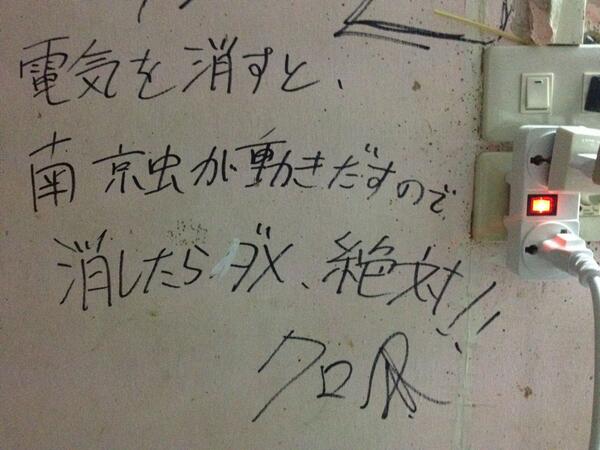 電気を消すと、
南京虫が動きだすので
消したらダメ、絶対!!
クロ